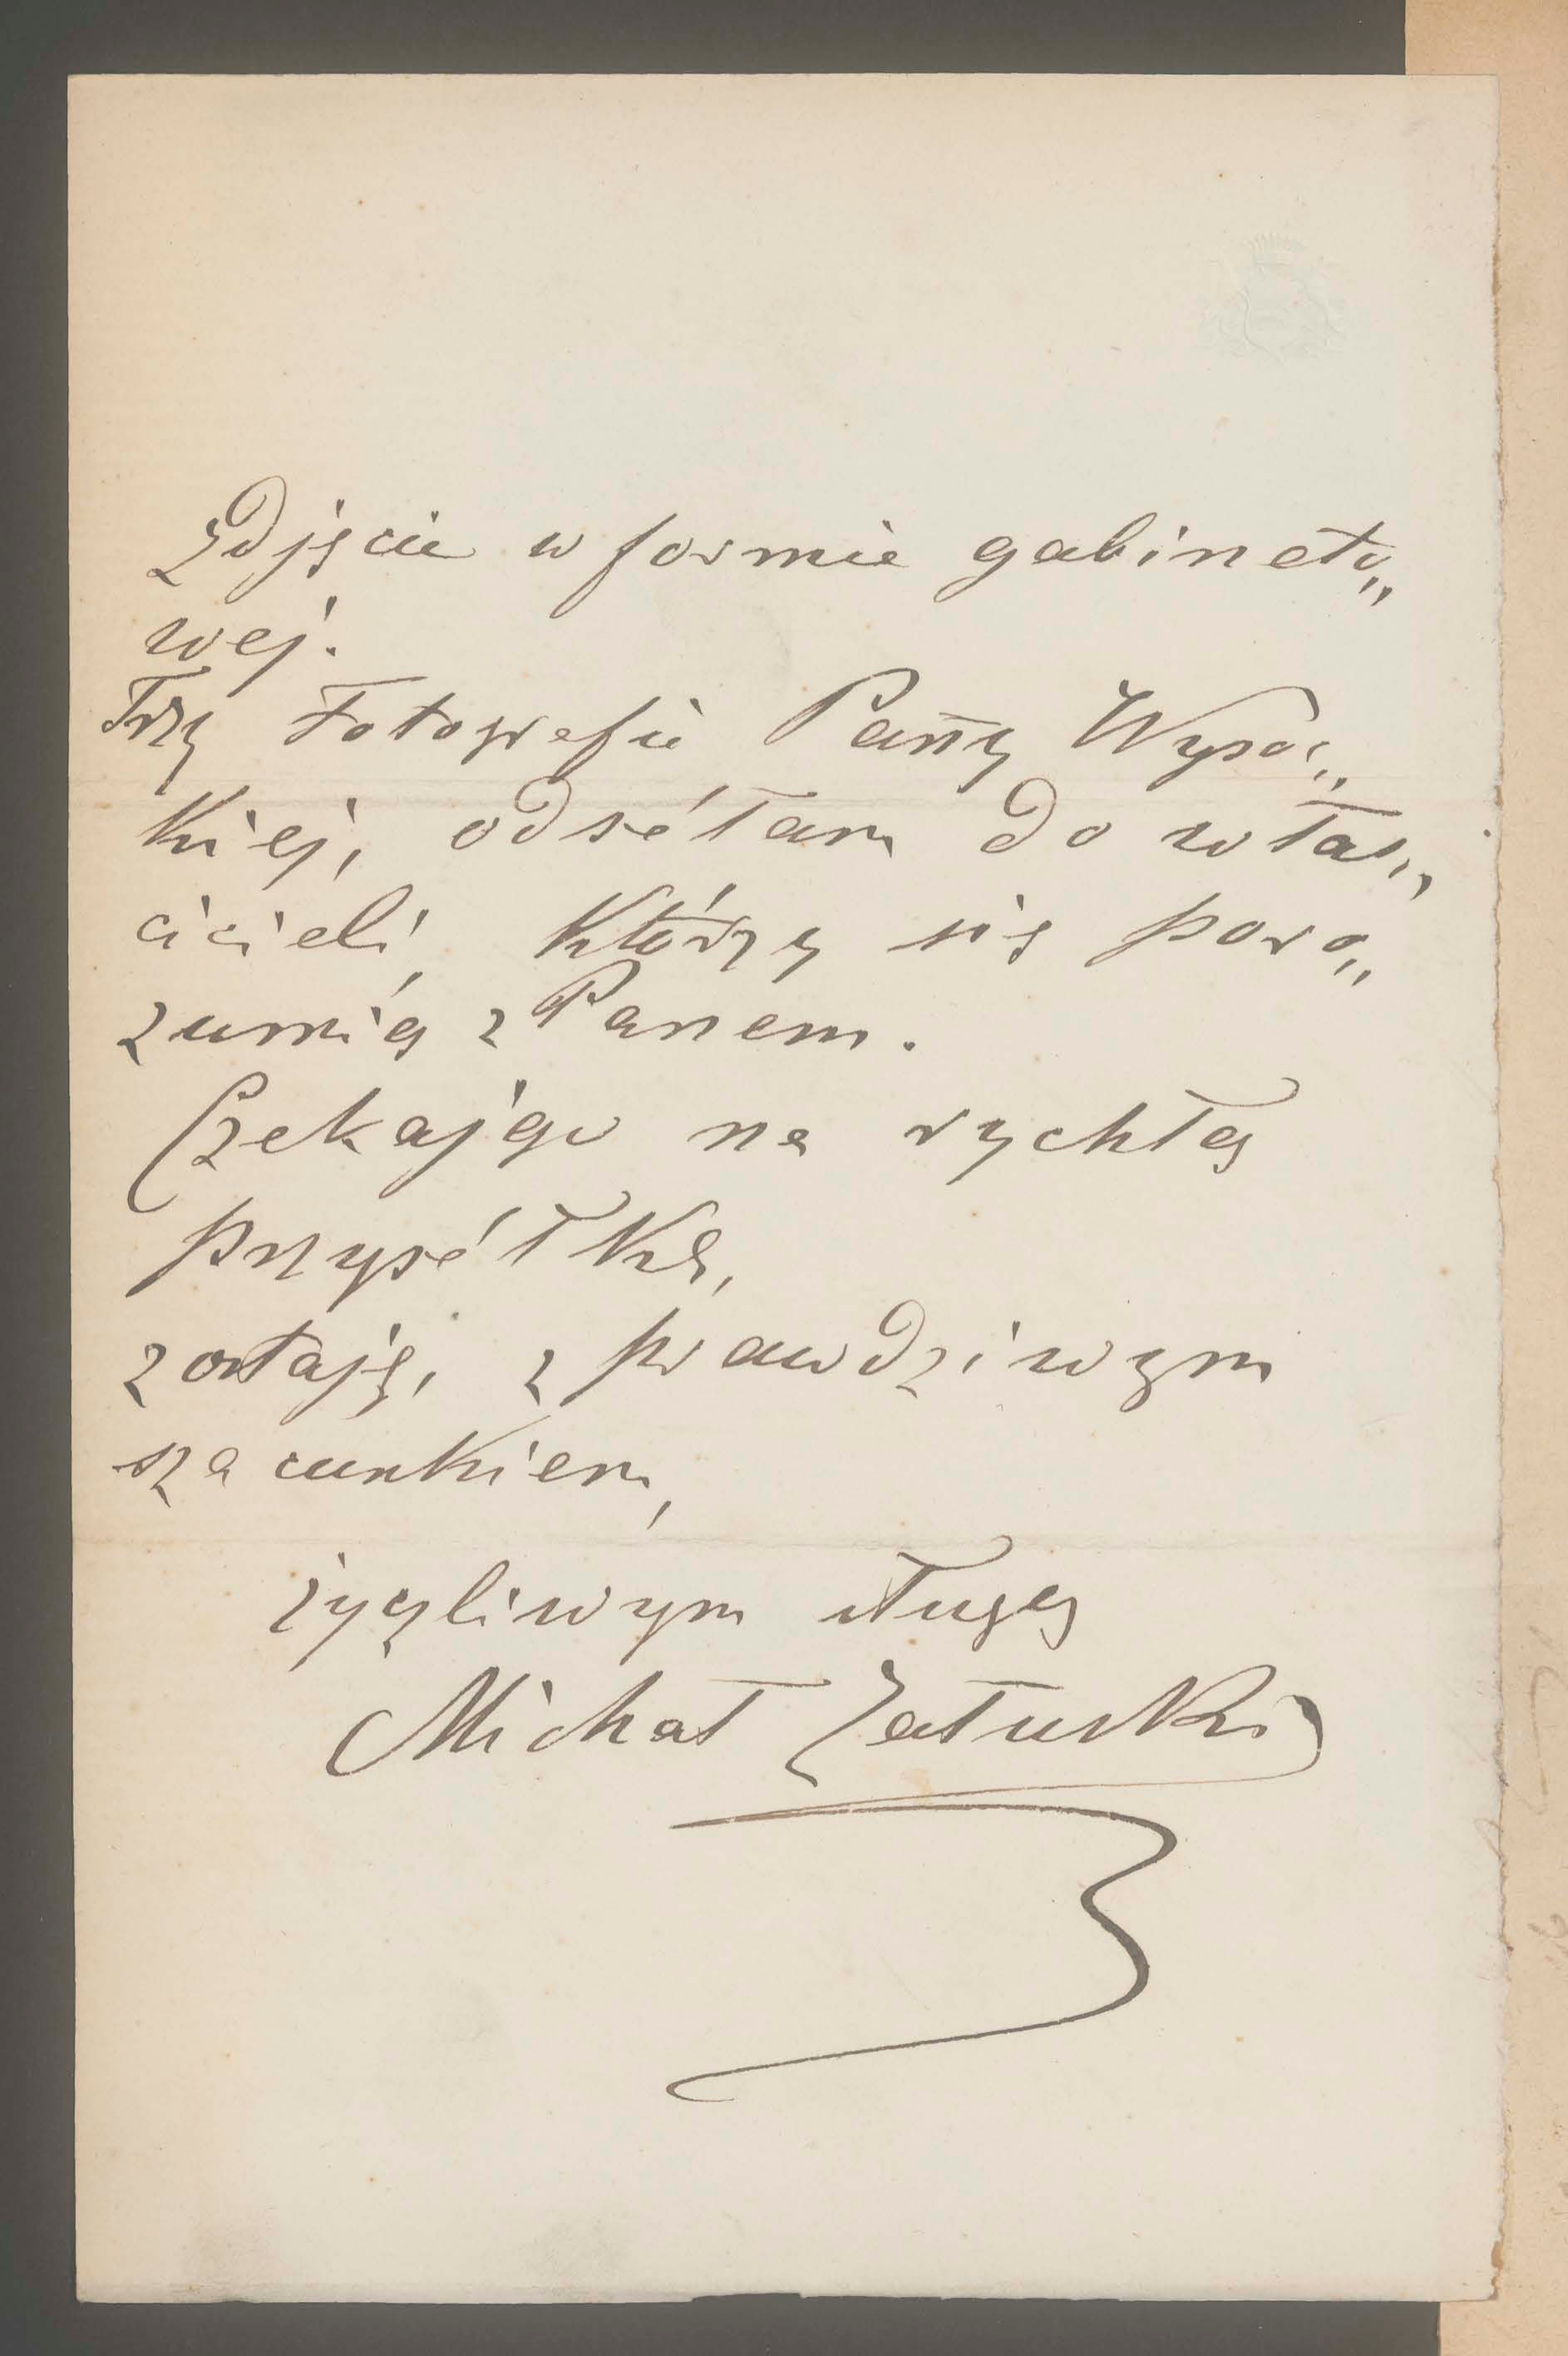 Zdjęcie w formie gabineto„
wej.
Trzy Fotografie Pan̄y Wysoc„
kiej, odséłam do właś„
cicieli, którzy się poro„
zumią z Panem.
Czekając na rychłą
przyséłkę,
zostaję, z prawdziwym
szacunkiem,
życzliwym sługą
Michał Załuski